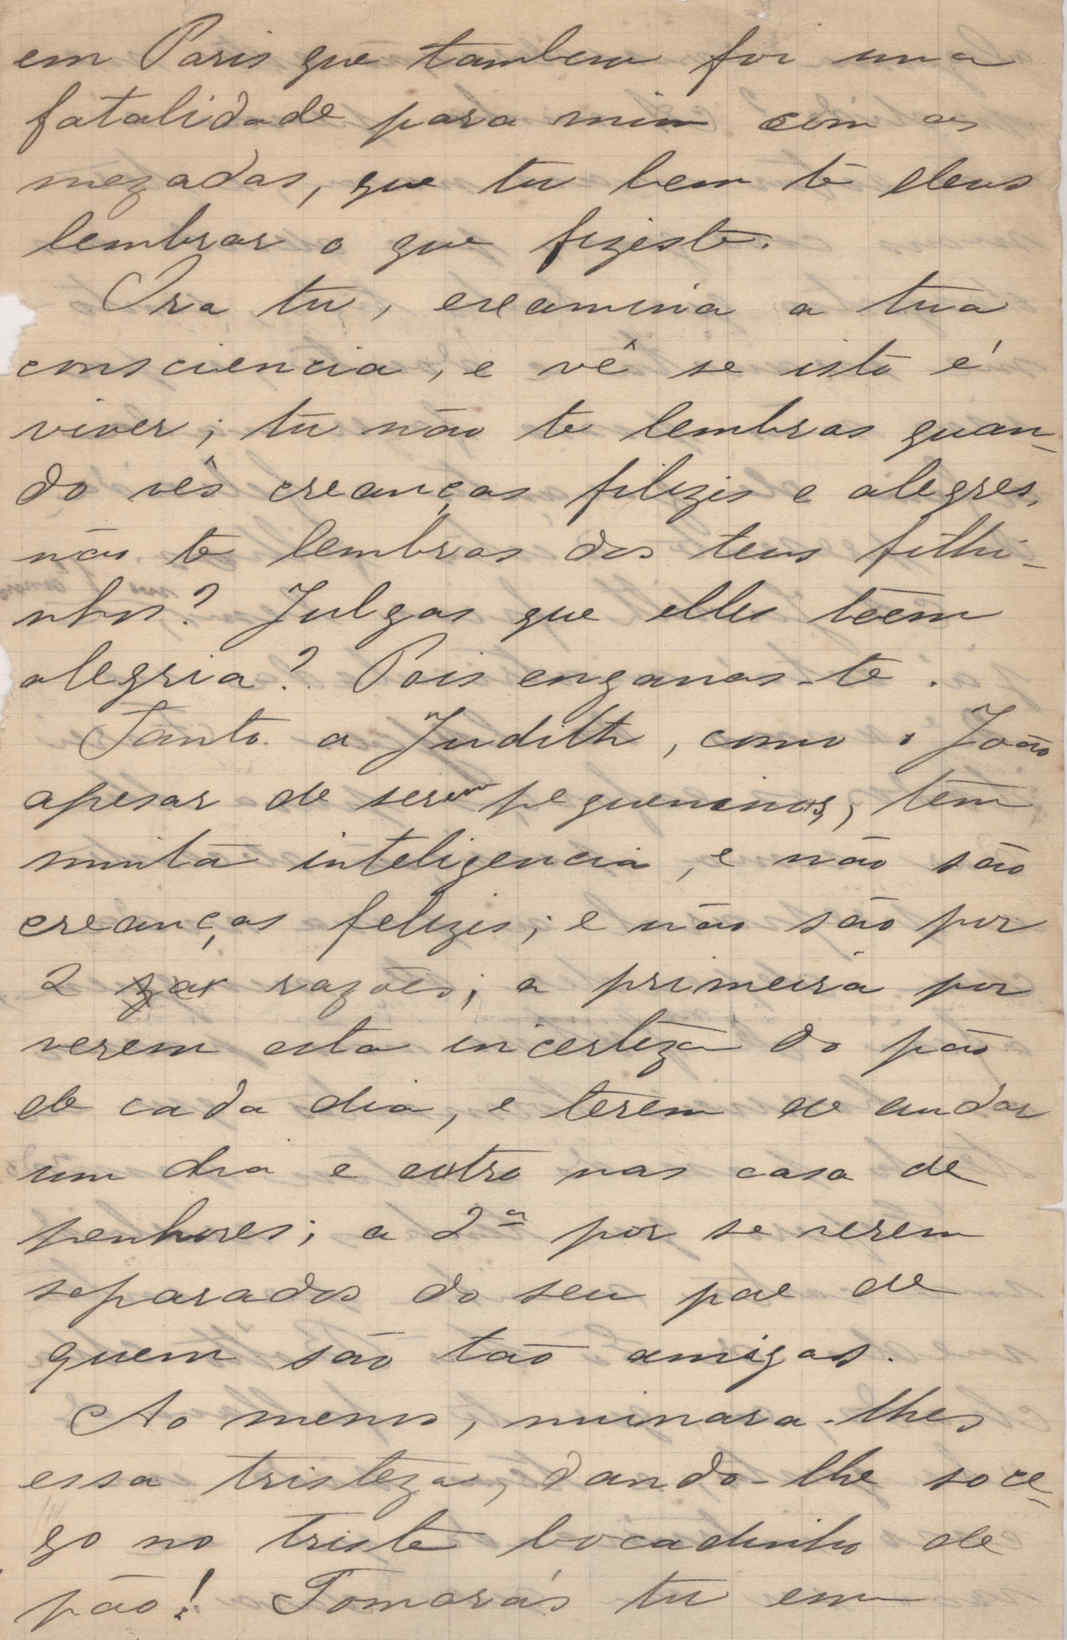 em Paris que tambem foi uma
fatalidade para mim com as
mezadas, que tu bem te deves
lembrar o que fizeste.
Ora tu, examina a tua
consciencia, e vê se isto é
viver; tu não te lembras quan-
do vês creanças filizis e alegres,
não te lembras dos teus filhi-
nhos? Julgas que elles teem
alegria? Pois enganas-te.
Tanto a Judith, como o João
apesar de serem pequeninos, têm
muita inteligencia, e não são
creanças felizis; e não são por
2 razões; a primeira por
verem esta incerteza do pão
de cada dia, e terem de andar
um dia e outro nas casa de
penhores; a 2ª por se verem
separados do seu pae de
quem são tão amigos.
Ao menos, minora-lhes
essa tristeza, dando-lhe soce-
go no triste bocadinho de
pão! Tomarás tu em